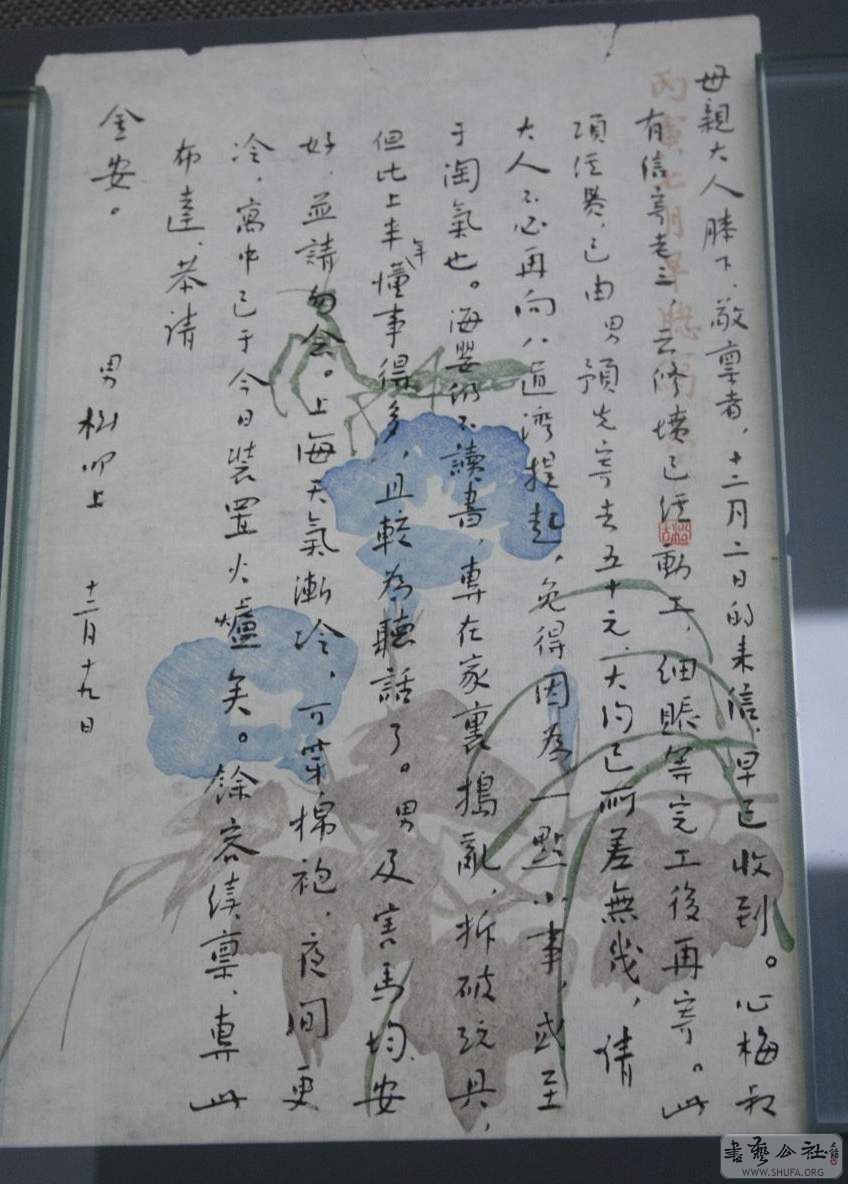 母親大人膝下，敬稟者，十二月二日的来信，早已收到。心梅叔
有信寄老三，云修墳已经動工，细賬等完工後再寄。此
項经费，已由男預先寄去五十元，大约已所差無幾，倩
大人不必再向八道灣提起，免得因为一點小事，或至
于淘氣也。海嬰仍不讀書，專在家裏搗亂，拆破玩具，
但比上半年懂事得多，且較为聽話了。男及害馬均安
好，並請勿念。上海天氣漸冷，可穿棉袍，夜间更
冷，寓中已于今日裝置火爐矣。餘容續禀，專此
布達，恭请
金安。
男樹叩上 十二月十九日
丙寅七月
書藝公社
WWW.SHUFA.ORG